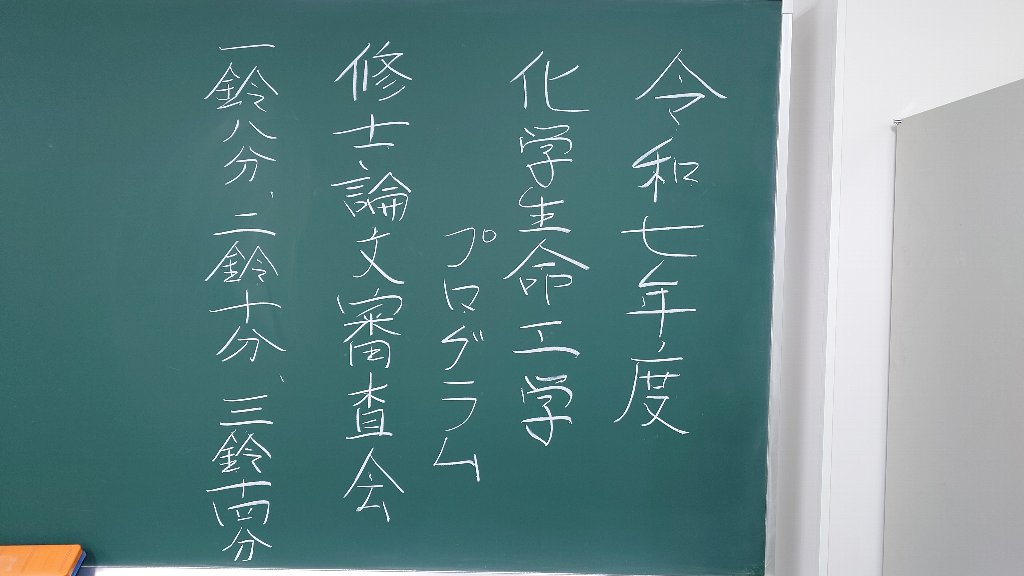 令和七年度
化学生命工学
プログラム
修士論文審査会
一鈴八分、二鈴十分、三鈴十四分